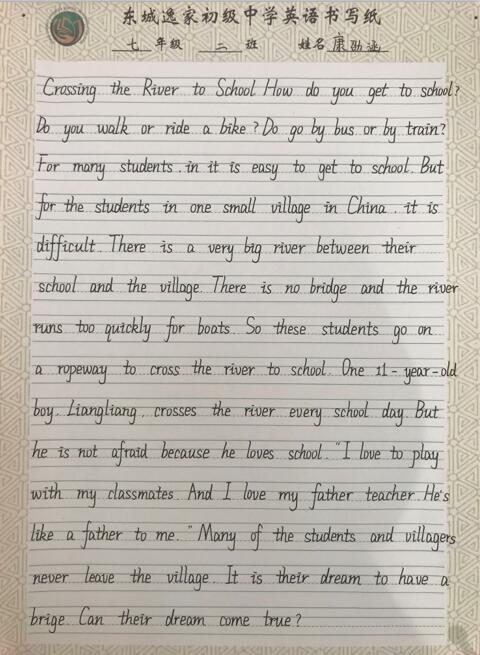 东城逸家初级中学英语书写纸
七年级 二班 姓名康劭涵
Crossing the River to School How do you get to school?
Do you walk or ride a bike? Do go by bus or by train?
For many students. in it is easy to get to school. But
for the students in one small village in China. it is
difficult. There is a very big river between their
school and the village. There is no bridge and the river
runs too quickly for boats. So these students go on
a ropeway to cross the river to school. One 11-year-old
boy. Liangliang. crosses the river every school day. But
he is not afraid because he loves school. "I love to play
with my classmates. And I love my father teacher. He's
like a father to me." Many of the students and villagers
never leave the village. It is their dream to have a
brige. Can their dream come true?